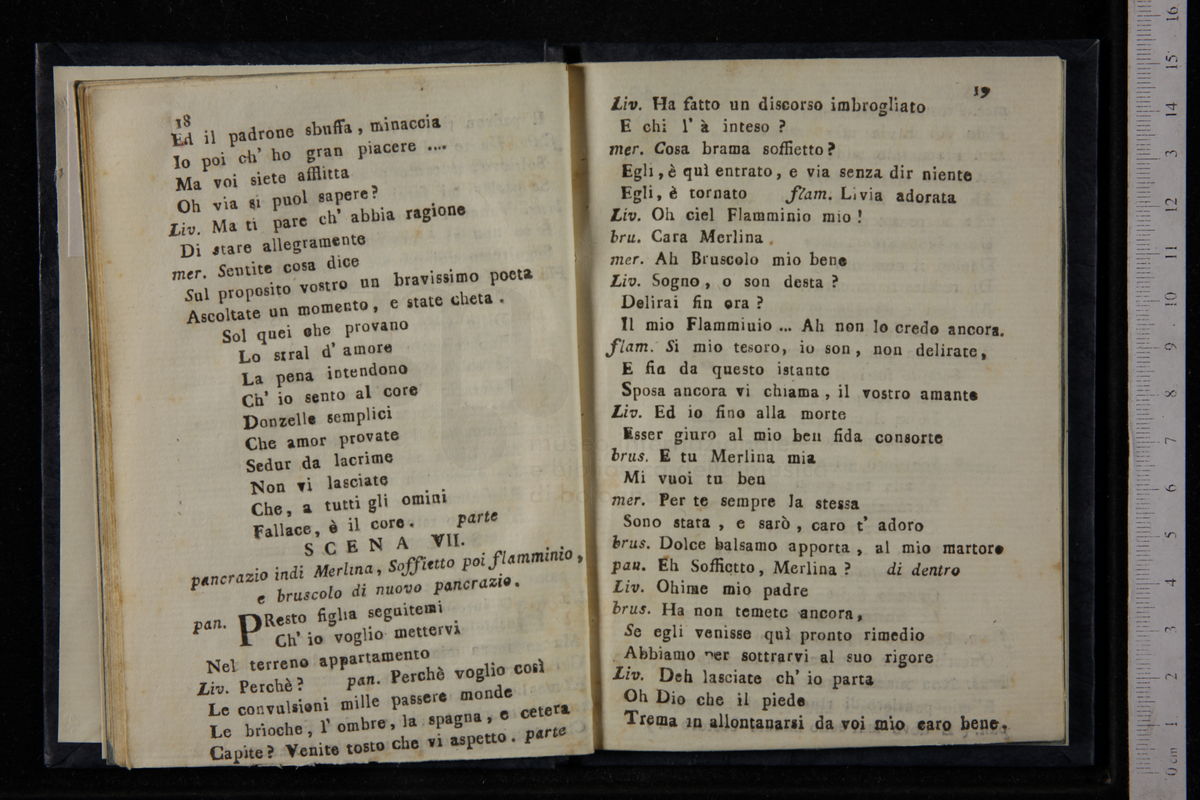 18
Ed il padrone sbuffa, minaccia
Io poi ch' ho gran piacere ....
Ma voi siete afflitta
Oh via si puol sapere?
Liv. Ma ti pare ch' abbia ragione
Di stare allegramente
mer. Sentite cosa dice
Sul proposito vostro un bravissimo poeta
Ascoltate un momento, e state cheta.
Sol quei che provano
Lo stral d' amore
La pena intendono
Ch' io sento al core
Donzelle semplici
Che amor provate
Sedur da lacrime
Non vi lasciate
Che, a tutti gli omini
Fallace, è il core. parte
SCENA VII.
pancrazio indi Merlina, Soffietto poi flamminio,
e bruscolo di nuovo pancrazio.
pan. PResto figlia seguitemi
Ch' io voglio mettervi
Nel terreno appartamento
Liv. Perchè? pan. Perchè voglio così
Le convulsioni mille passere monde
Le brioche, l' ombre, la spagna, e cetera
Capite? Venite tosto che vi aspetto. parte
19
Liv. Ha fatto un discorso imbrogliato
E chi l' à inteso?
mer. Cosa brama soffietto?
Egli, è quì entrato, e via senza dir niente
Egli, è tornato flam. Livia adorata
Liv. Oh ciel Flamminio mio!
bru. Cara Merlina.
mer. Ah Bruscolo mio bene
Liv. Sogno, o son desta?
Delirai fin ora?
Il mio Flamminio ... Ah non lo credo ancora.
flam. Si mio tesoro, io son, non delirate,
E fia da questo istante
Sposa ancora vi chiama, il vostro amante
Liv. Ed io fino alla morte
Esser giuro al mio ben fida consorte
brus. E tu Merlina mia
Mi vuoi tu ben
mer. Per te sempre la stessa
Sono stata, e sarò, caro t' adoro
brus. Dolce balsamo apporta, al mio martoro
pan. Eh Soffietto, Merlina? di dentro
Liv. Ohime mio padre
brus. Ha non temete ancora,
Se egli venisse quì pronto rimedio
Abbiamo per sottrarvi al suo rigore
Liv. Deh lasciate ch' io parta
Oh Dio che il piede
Trema in allontanarsi da voi mio caro bene.